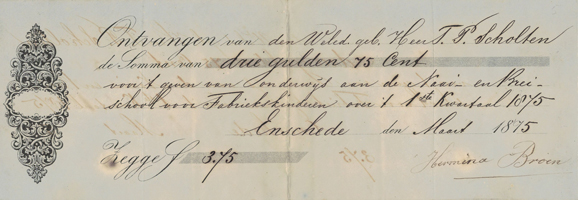 Ontvangen van den Weled. geb. Heer T. P. Scholten
de Somma van drie gulden 75 Cent
voor 't geven van onderwijs aan de Naai- en Brei-
school voor Fabriekskinderen over 't 1ste Kwartaal 1875
Enschede den Maart 1875
Zegge f 3.75 Hermina Broen